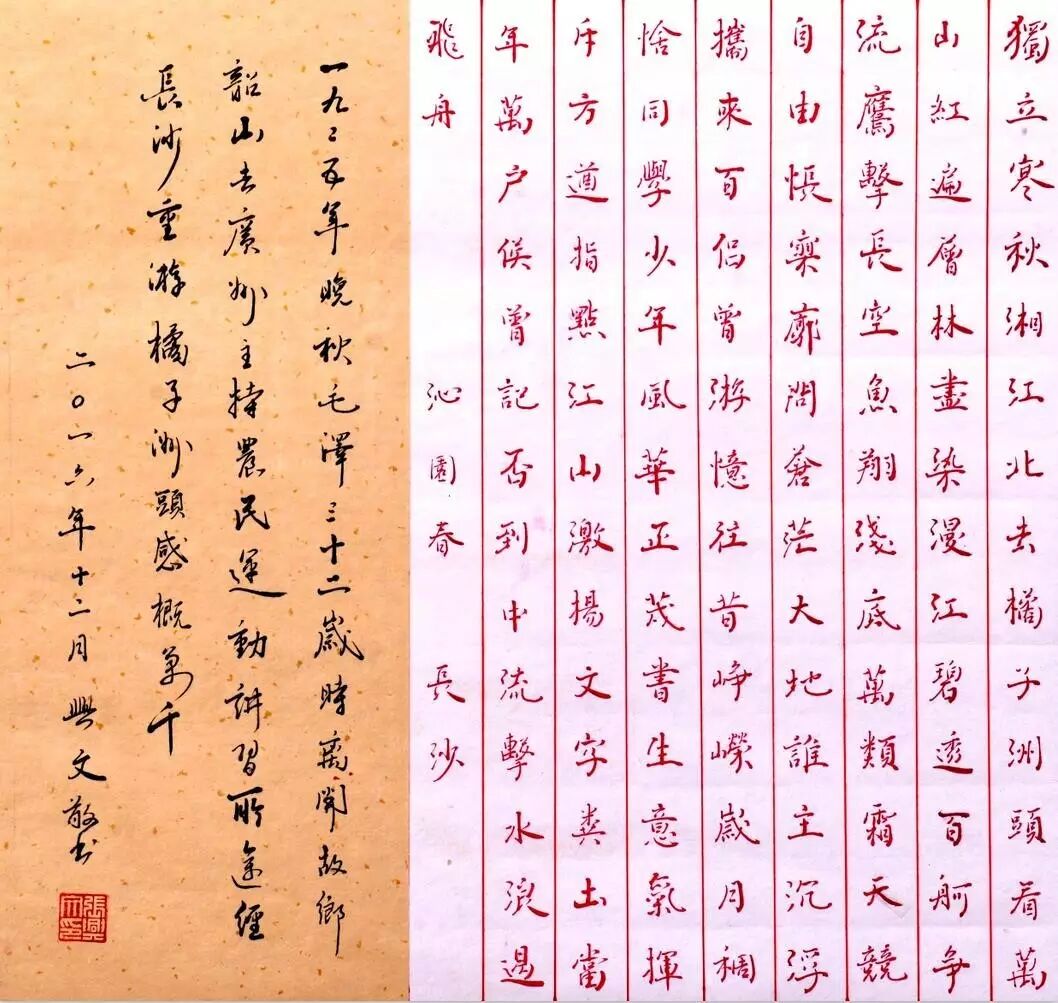 獨立寒秋湘江北去橘子洲頭看萬
山紅遍層林盡染漫江碧透百舸争
流鷹擊長空魚翔淺底萬類霜天競
自由悵寥廓問蒼茫大地誰主沉浮
攜來百侣曾游憶往昔峥嶸歲月稠
恰同學少年風華正茂書生意氣揮
斥方遒指點江山激揚文字糞土當
年萬户侯曾記否到中流擊水浪遏
飛舟 沁園春 長沙
一九二五年晚秋毛澤三十二歲時離開故鄉
韶山去廣州主持農民運動講習所途經
長沙重游橘子洲頭感概萬千
二〇一六年十二月 興文敬书
張興文印